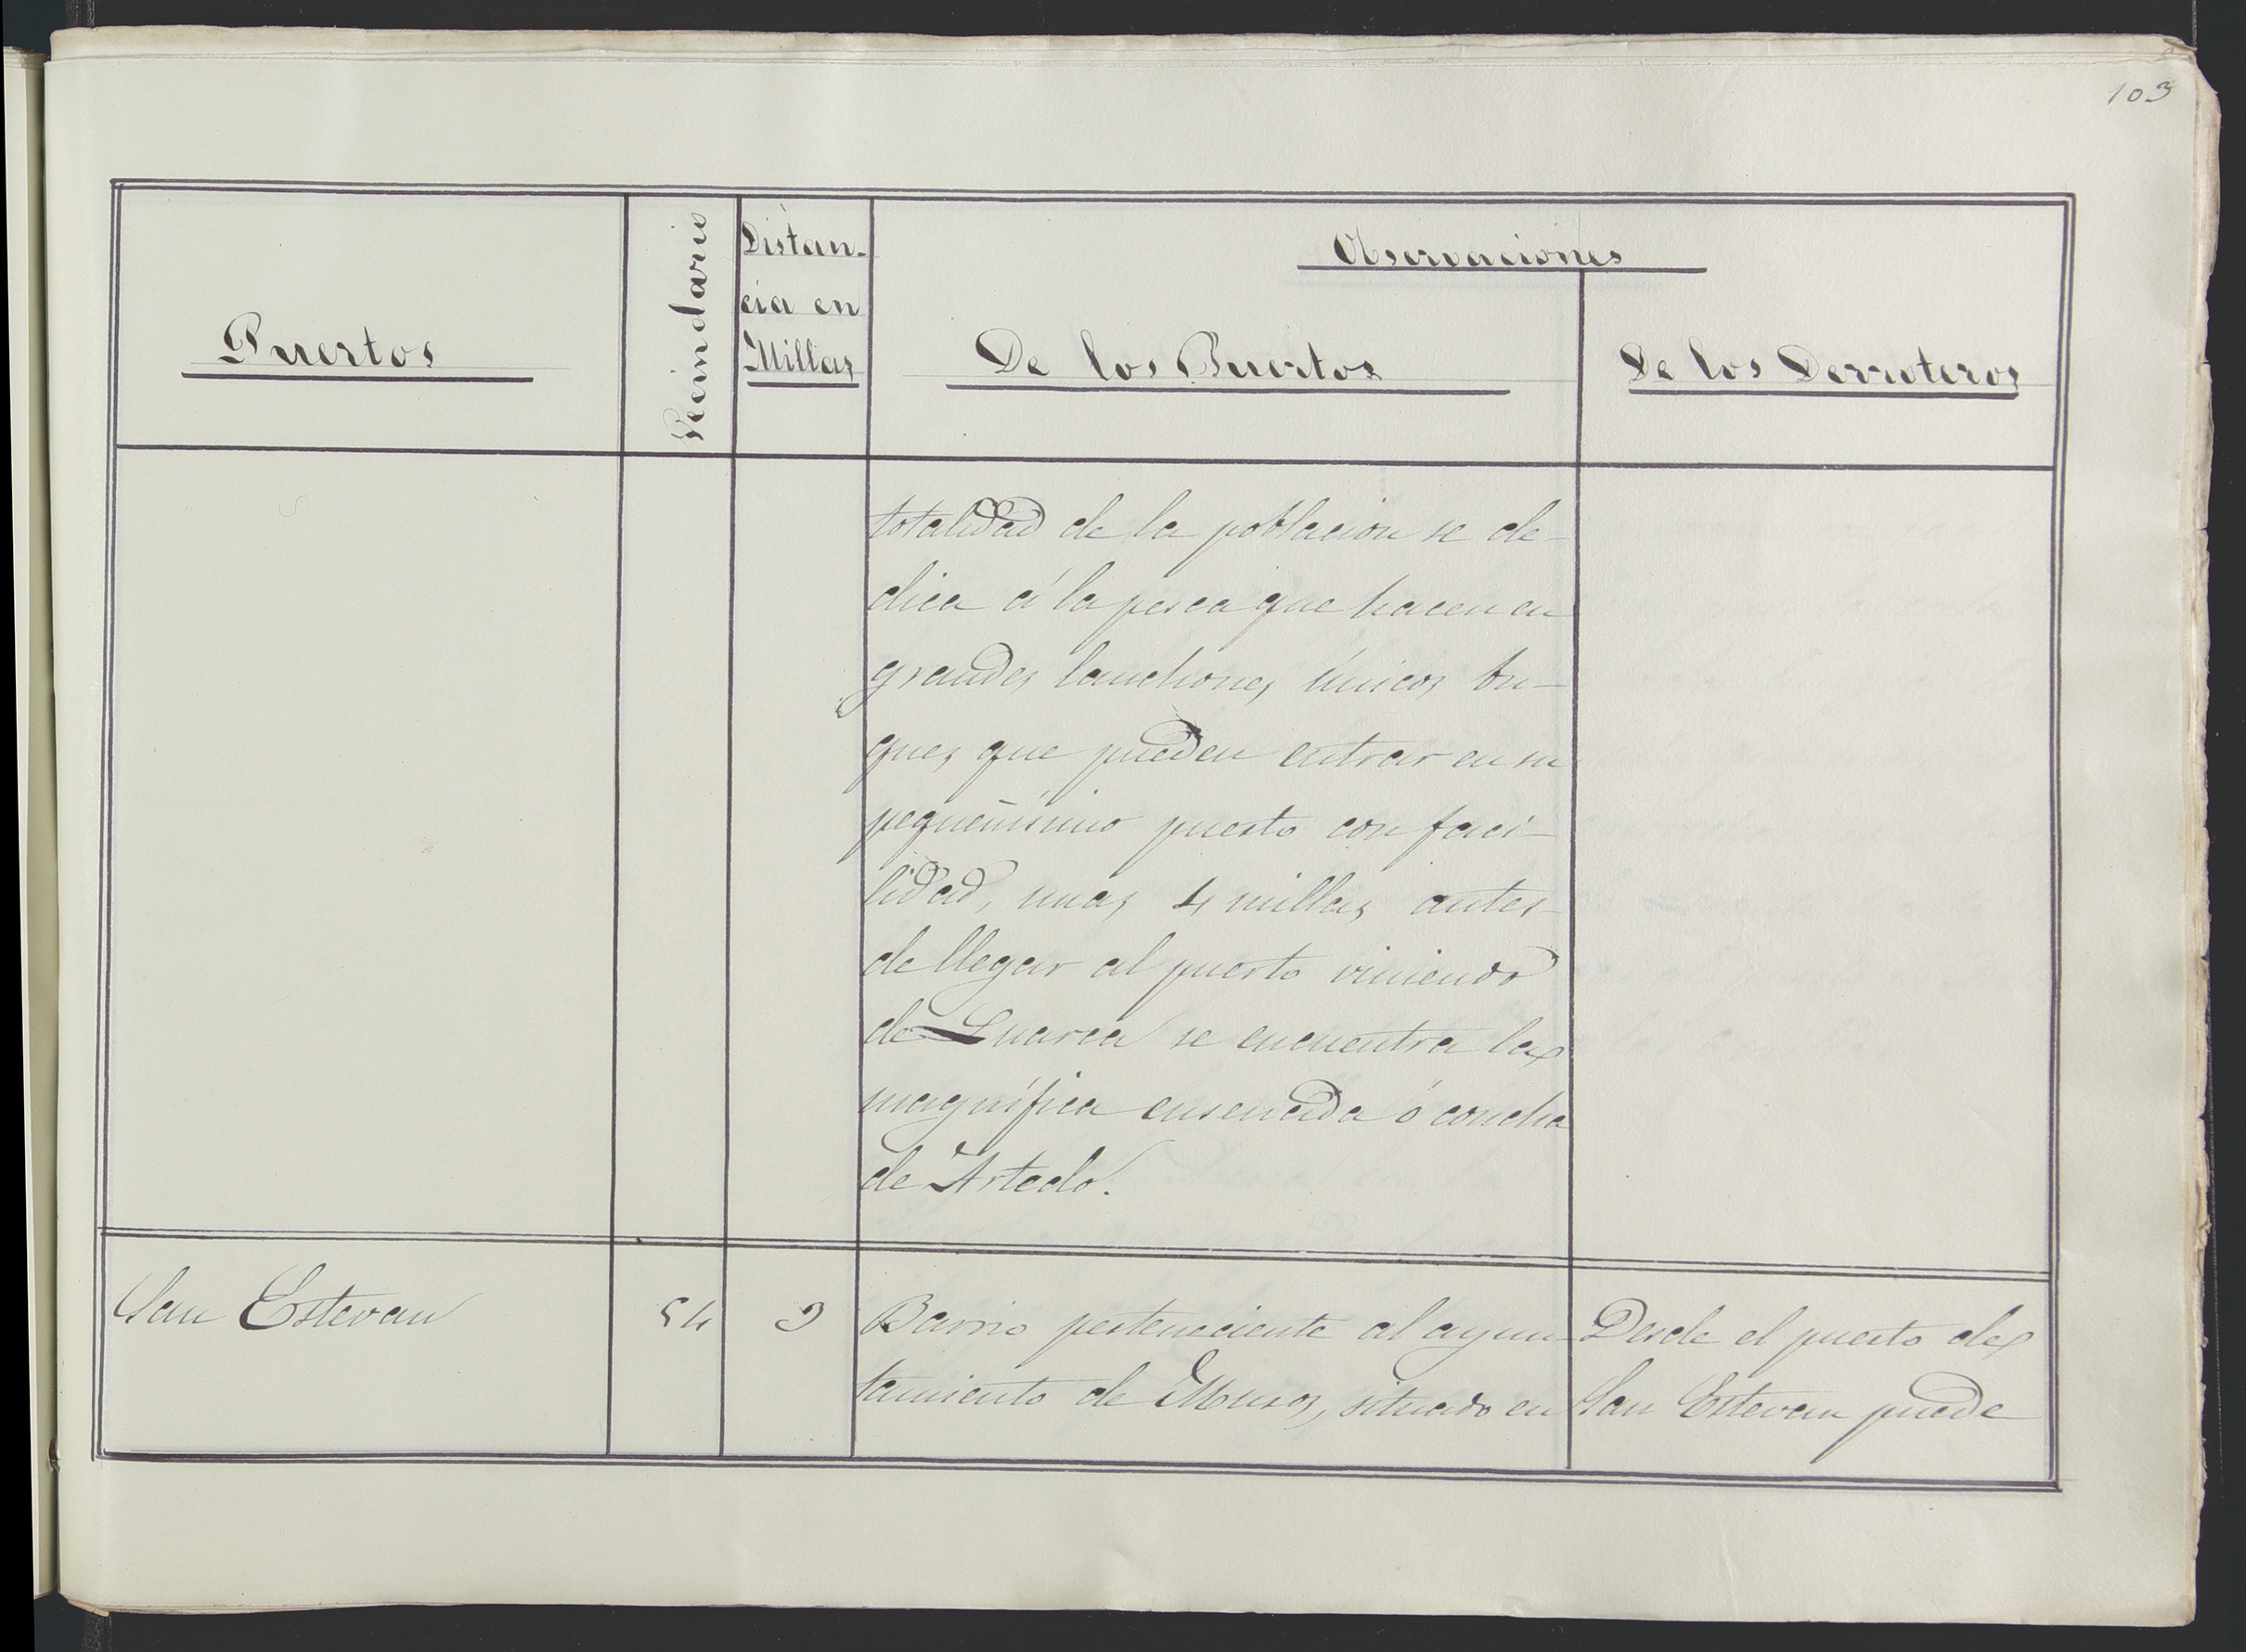 103
Observaciones
Puertos
Vecindario
Distan-
cia en
Millas
De los Puertos
De los Derroteros
totalidad de la poblacion se de-
dica á la pesca que hacen en
grandes lanchones, únicos bu-
ques que pueden entrar en su
pequeñísimo puerto con faci-
lidad, unas 4 millas antes
de llegar al puerto viniendo
de Luarca se encuentra la
magnífica ensenada ó concha
de Artedo.
San Estevan
54
Barrio perteneciente al ayun-
tamiento de Muros, situado en
Desde el puerto de
San Estevan puede